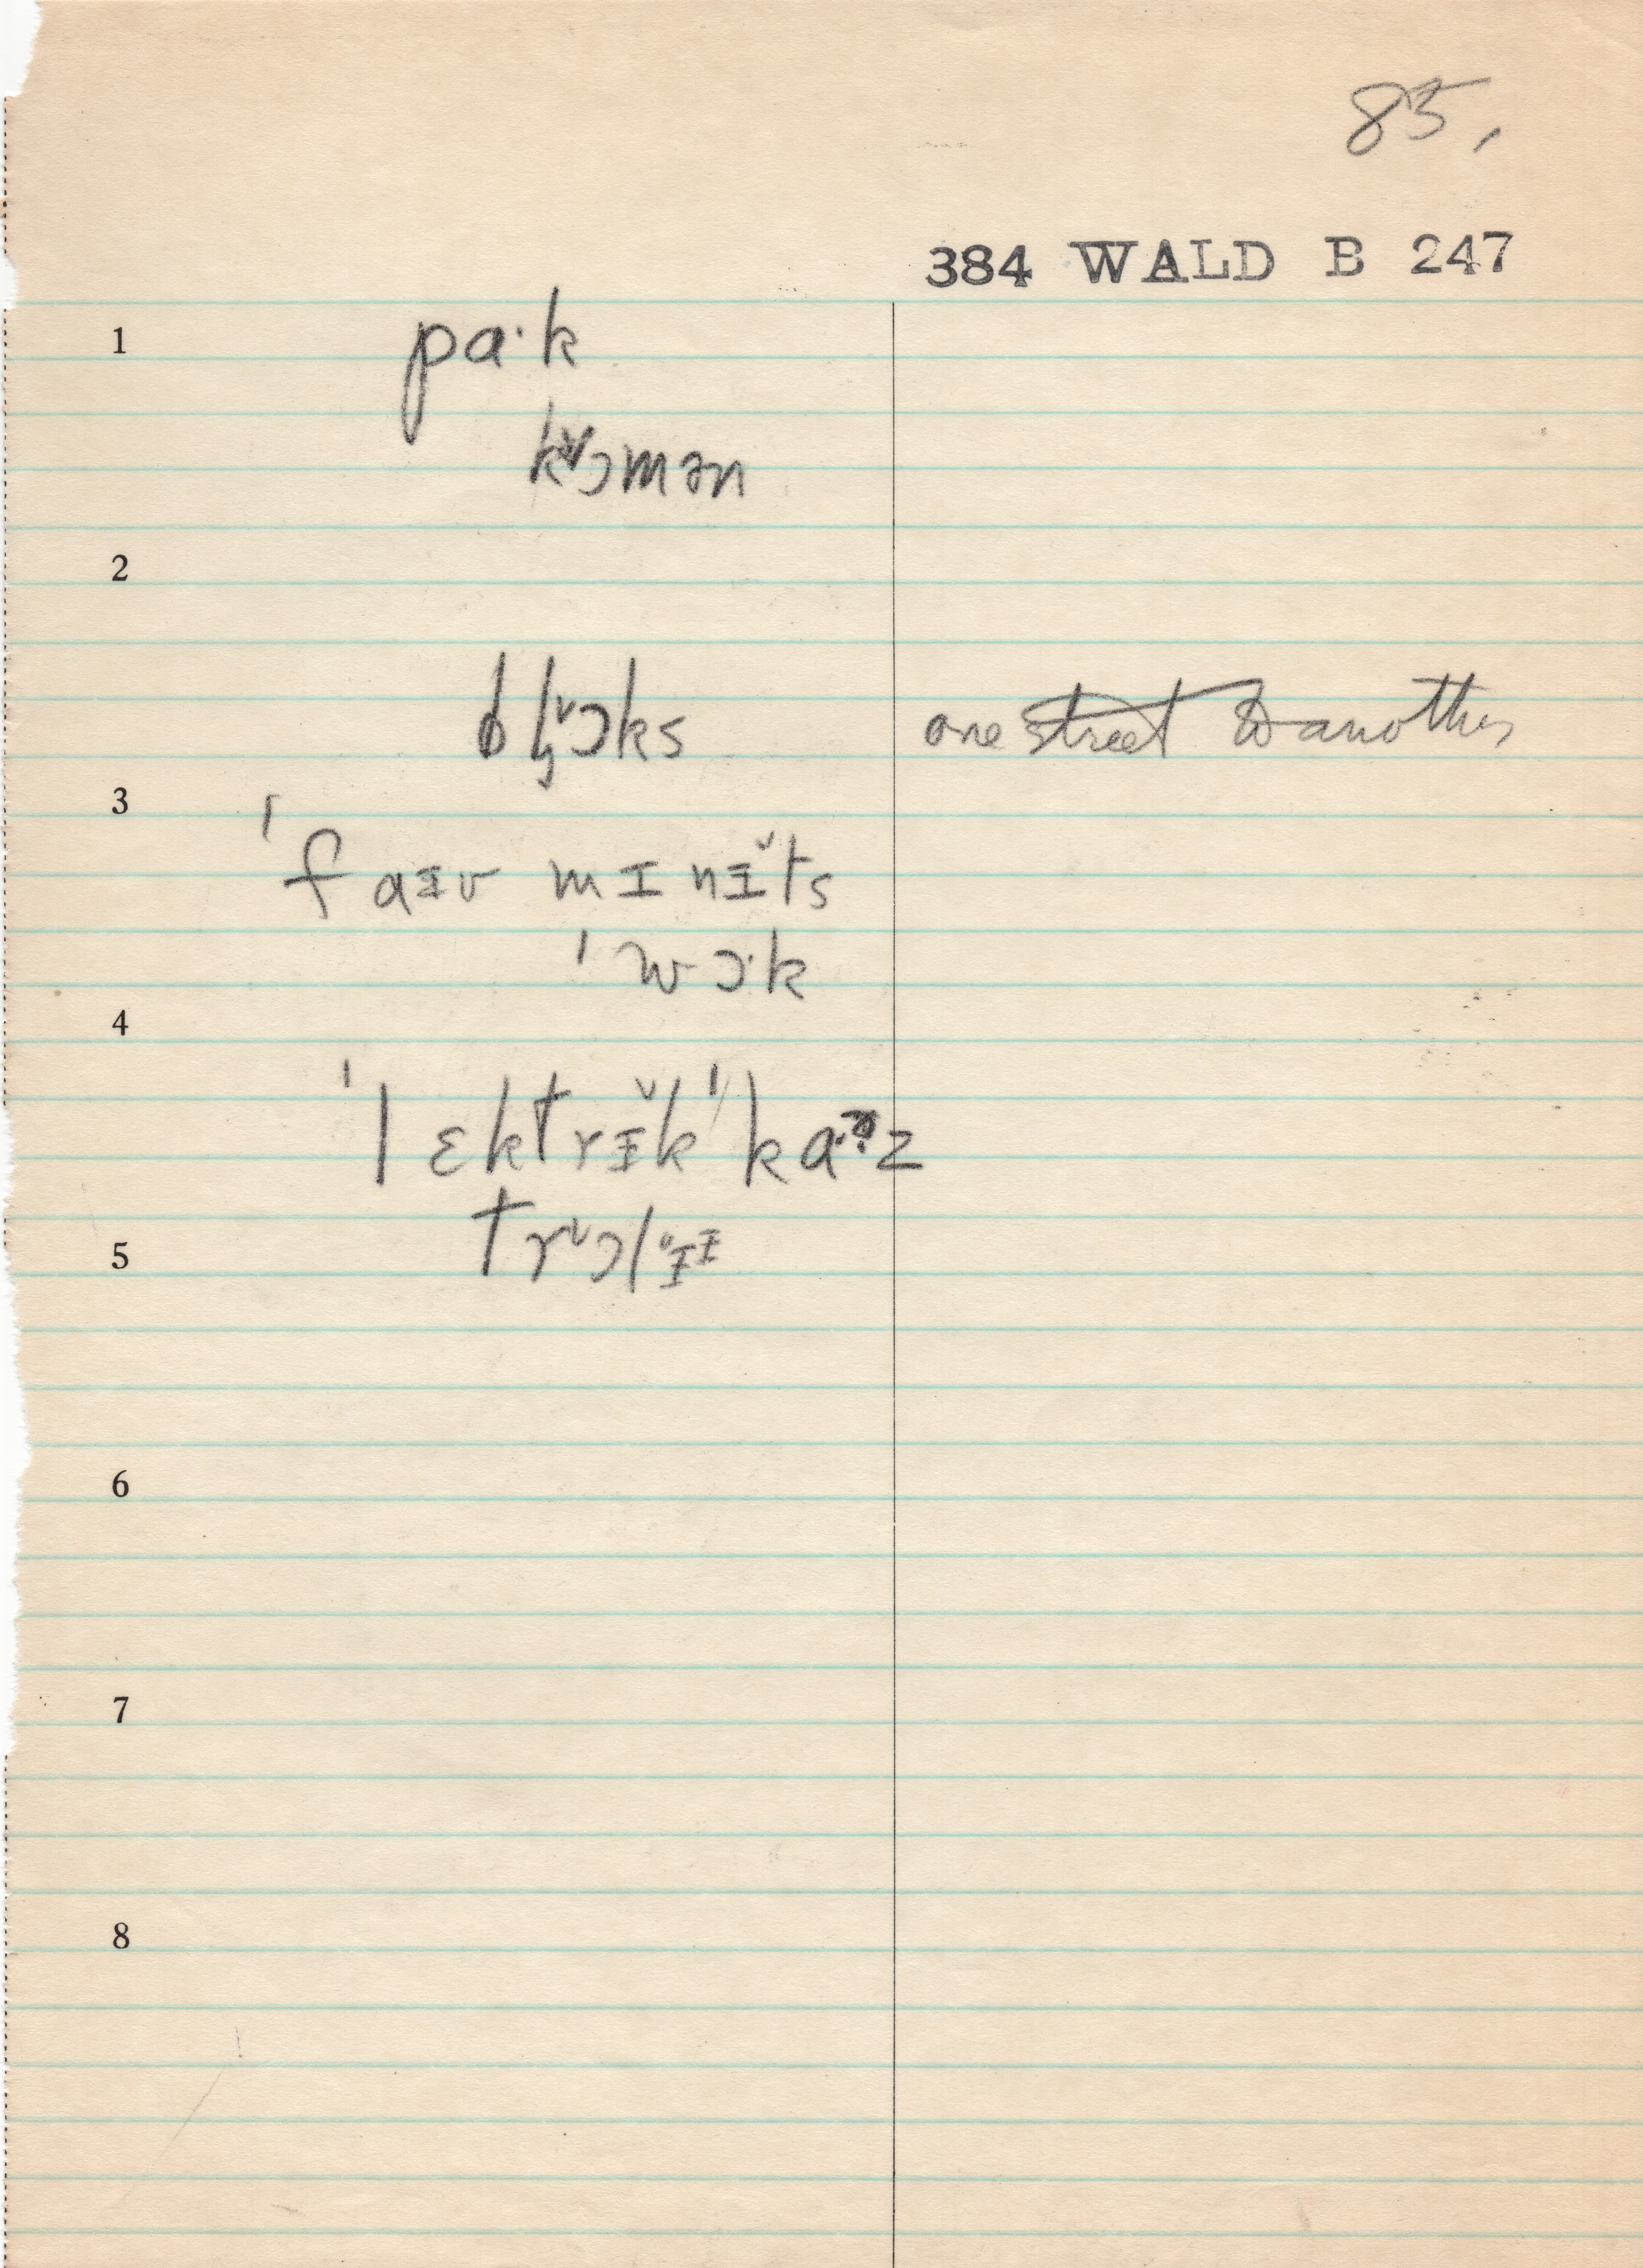 85,
384 WALD B 247
1 pa·k
kɔ̆mən
2
bl̥ɔ̆ks one street to another
3
ˈfaɪv mɪnɪ̆ts
ˈwɔ·k
4
ˈlɛktrɪ̆kˈka·ɚz
5 trɔ̆lɪ̆ɪ
6
7
8